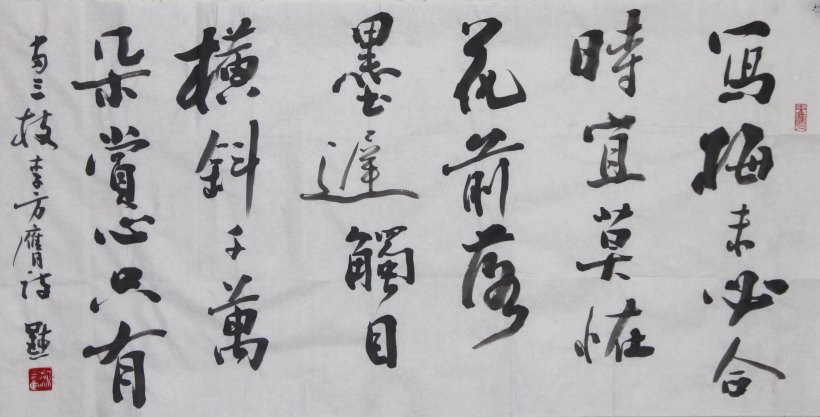 寫梅未必合
時宜莫怪
花前落
墨遲觸目
橫斜千萬
朵賞心只有
兩三枝李方膺詩